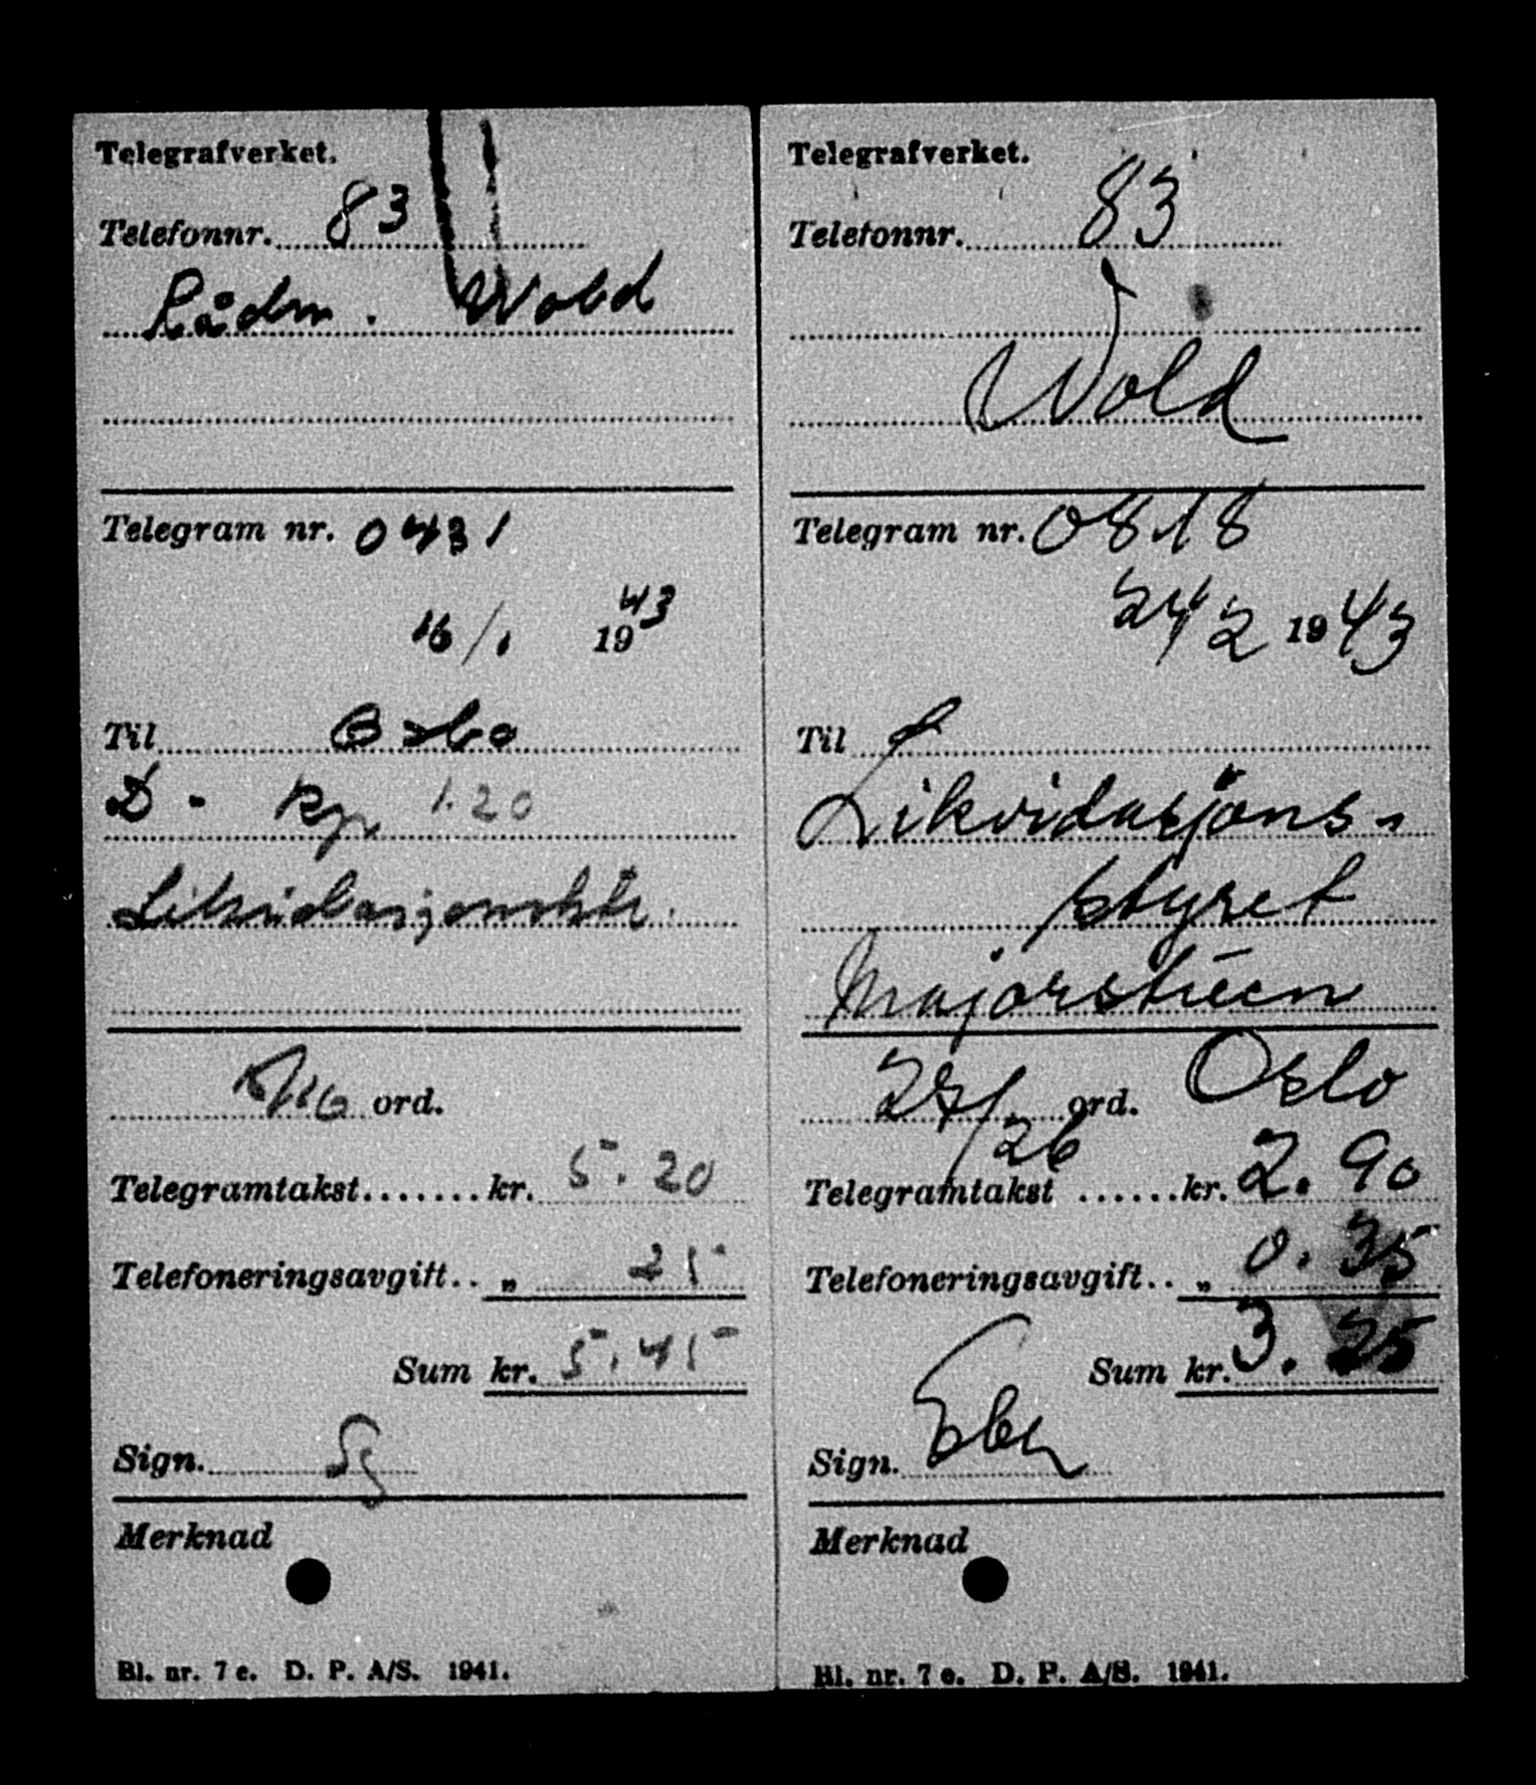 Telegrafverket.
Telefonnr. 83
Rådm. Wold
Telegram nr. 0431
16/1 1943
Til Oslo
D - Rp 1.20
Likvidasjonssty.
ord.
Telegramtakst.......kr. 5.20
Telefoneringsavgift.. „ 25
Sum kr. 5.45
Sign.
Merknad
Bl. nr. 7 e. D. P. A/S. 1941.
Telegrafverket.
Telefonnr. 83
Wold
Telegram nr. 0818
24/2 1943
Til
Likvidasjons-
styret
Majorstuen
Oslo
ord.
/26
Telegramtakst ......kr. 2.90
Telefoneringsavgift.. „ 0.35
Sum kr. 3.25
Sign.
Merknad
Bl. nr. 7 e. D. P. A/S. 1941.